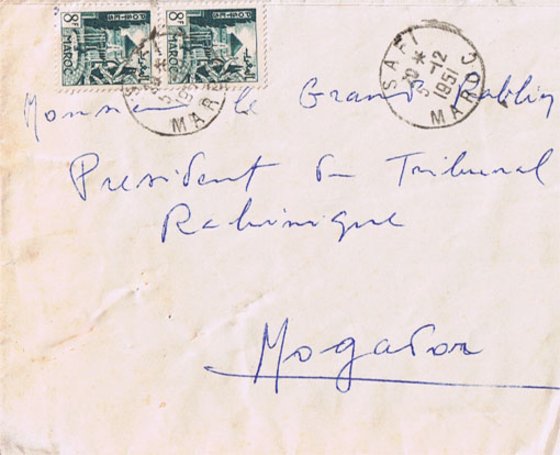 8F MAROC POSTES
8F MAROC POSTES
SAFI
5-12
1951
MAROC
Monsieur le Grand Rabbin
President du Tribunal
Rabinique
Mogador